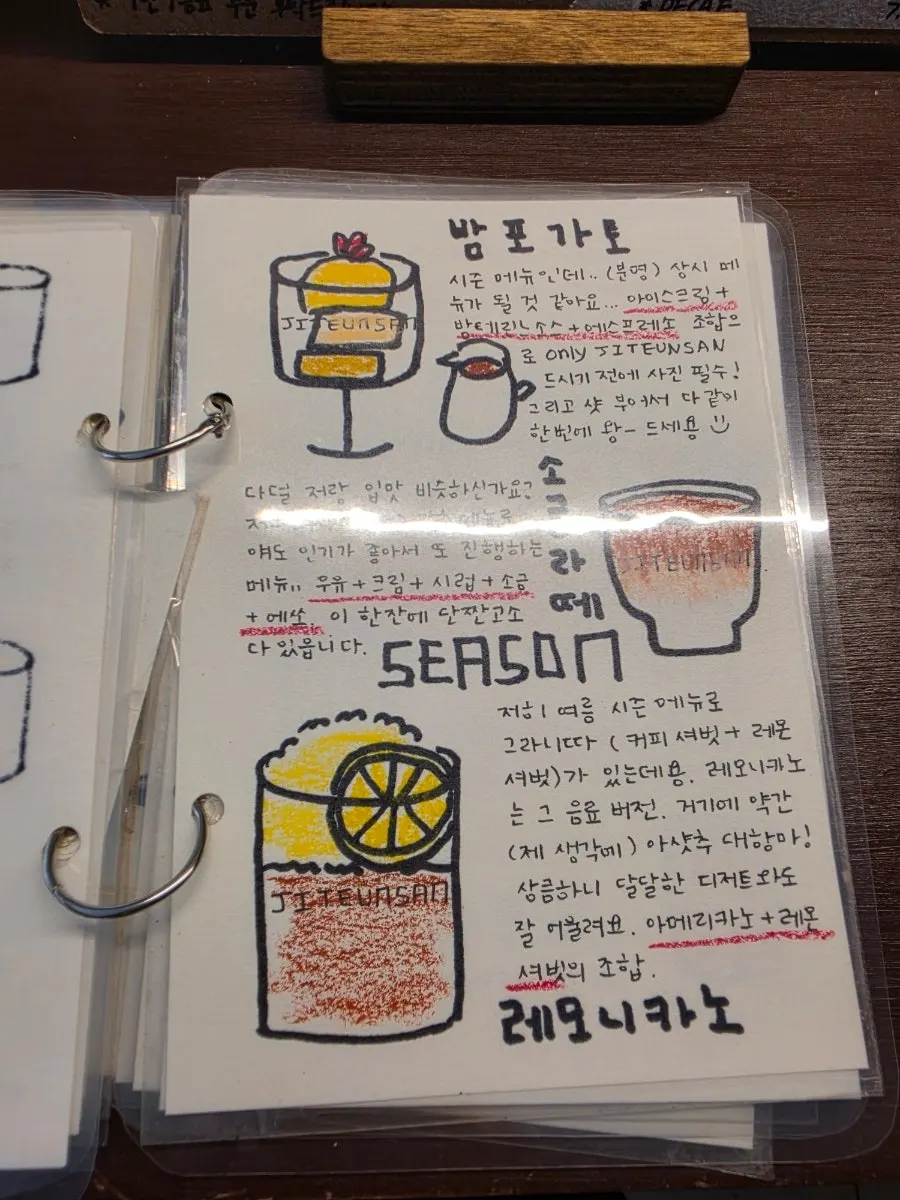 * DECAF
밤포가토
시즌 메뉴인데.. (분명) 상시 메
뉴가 될 것 같아요... 아이스크림+
밤테린느소스+에스프레소 조합으
로 only JITEUNSAN
드시기 전에 사진 필수!
그리고 샷 부어서 다같이
한번에 왕- 드세용
JITEUNSAN
소
라
떼
다덜 저랑 입맛 비슷하신가요?
얘도 인기가 좋아서 또 진행하는
메뉴.. 우유+크림+시럽+소금
+에쏘. 이 한잔에 단짠고소
다 있읍니다.
JITEUNSAN
SEASON
저희 여름 시즌 메뉴로
그라니따 (커피 셔벗+레몬
셔벗)가 있는데용. 레모니카노
는 그 음료 버전. 거기에 약간
(제 생각에) 아샷추 대항마!
상큼하니 달달한 디저트와도
잘 어울려요. 아메리카노+레몬
셔벗의 조합.
JITEUNSAN
레모니카노